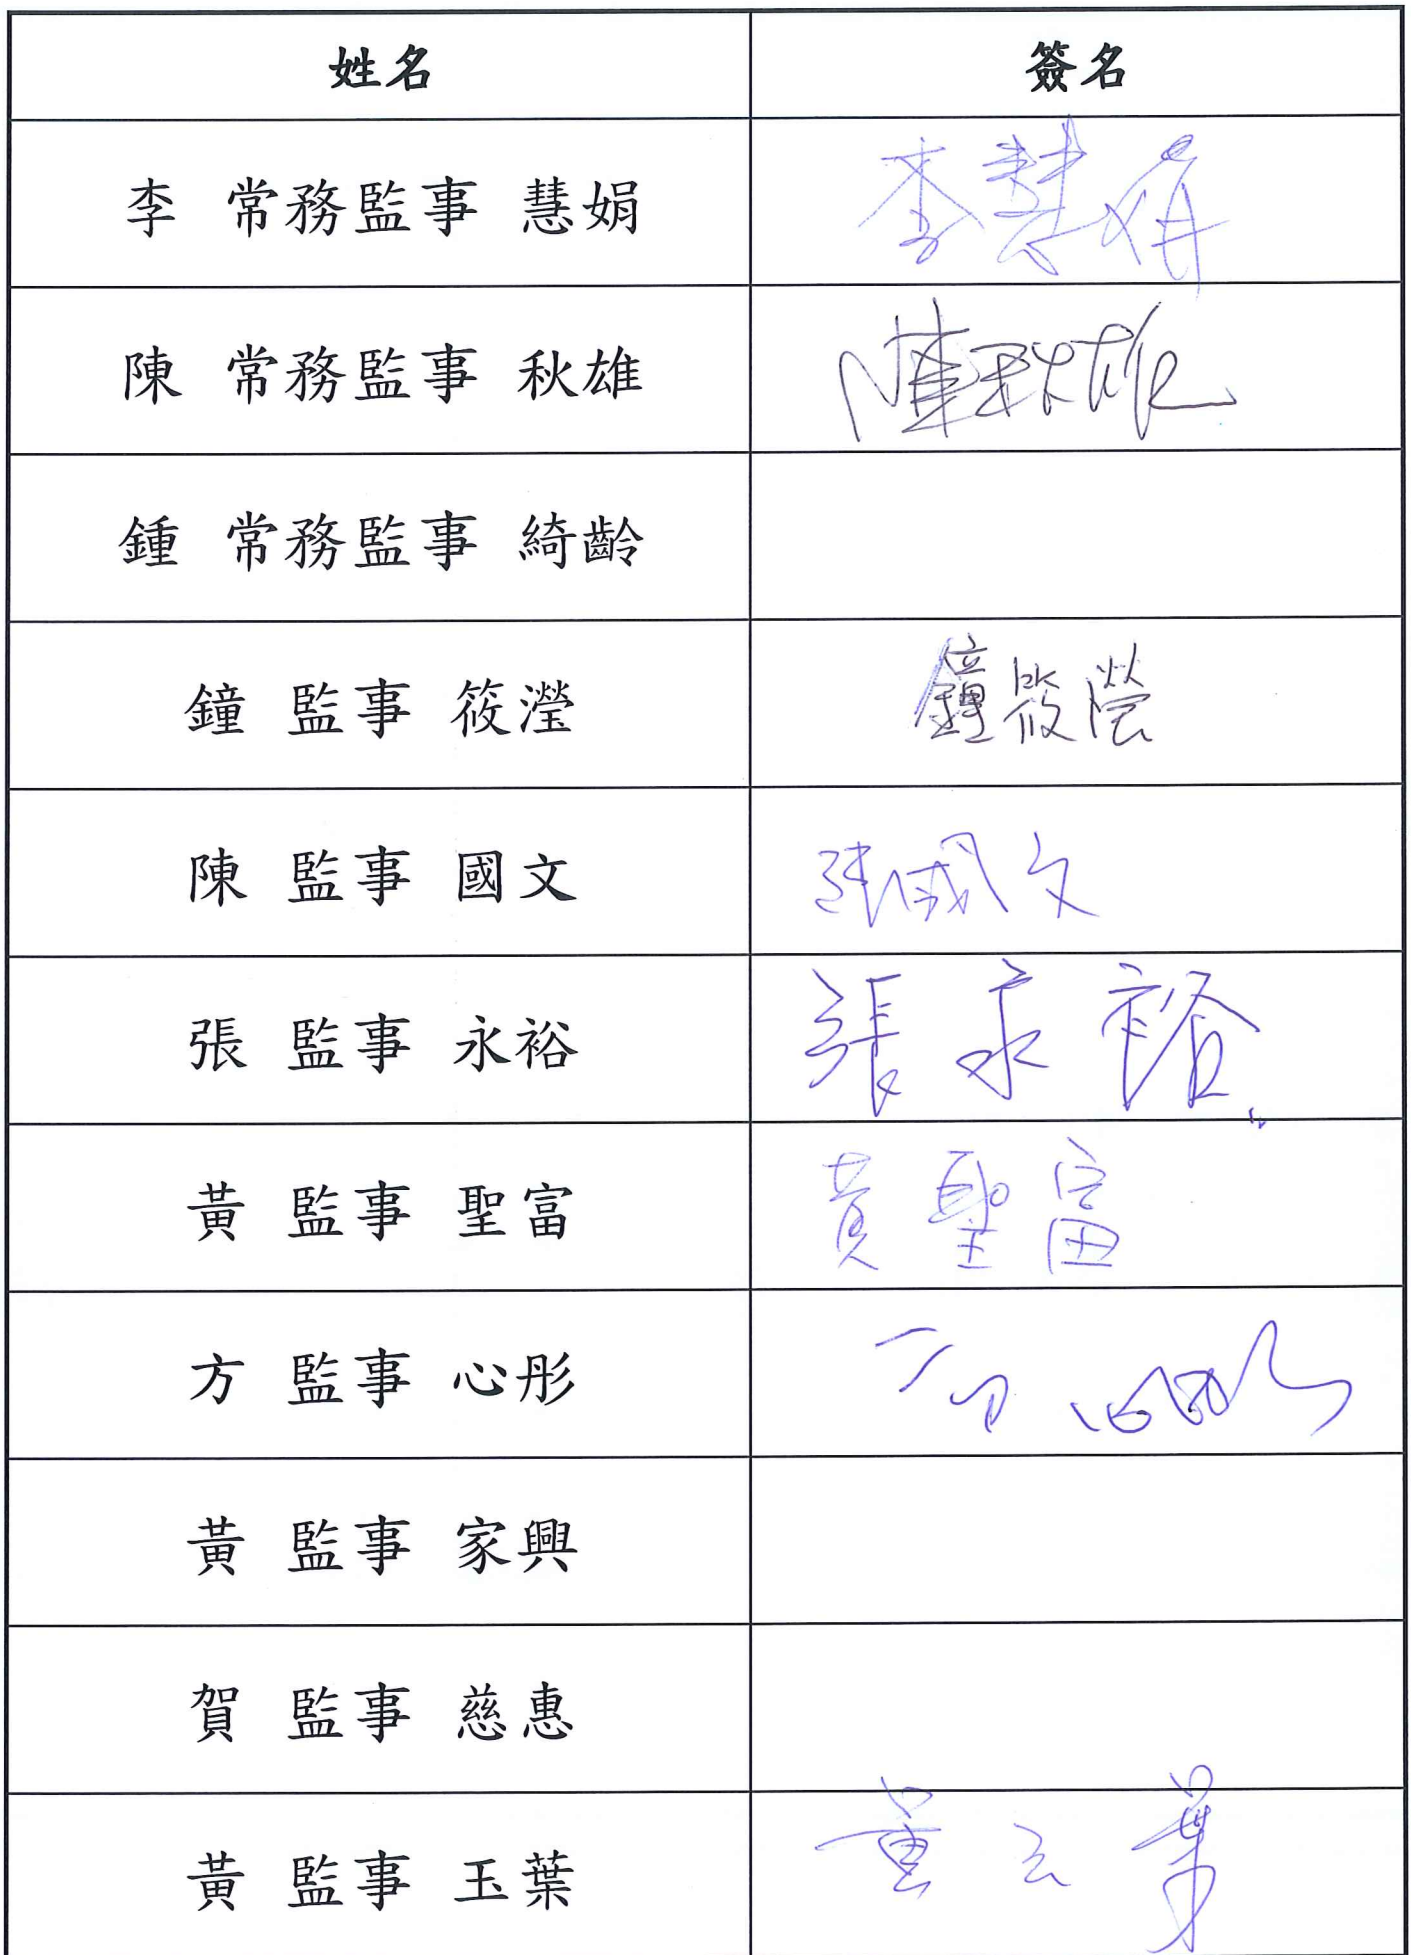 姓名 簽名
李 常務監事 慧娟 李慧娟
陳 常務監事 秋雄 陳秋雄
鍾 常務監事 綺齡
鐘 監事 筱瀅 鐘筱瀅
陳 監事 國文 陳國文
張 監事 永裕 張永裕
黃 監事 聖富 黃聖富
方 監事 心彤 方心彤
黃 監事 家興
賀 監事 慈惠
黃 監事 玉葉 黃玉葉